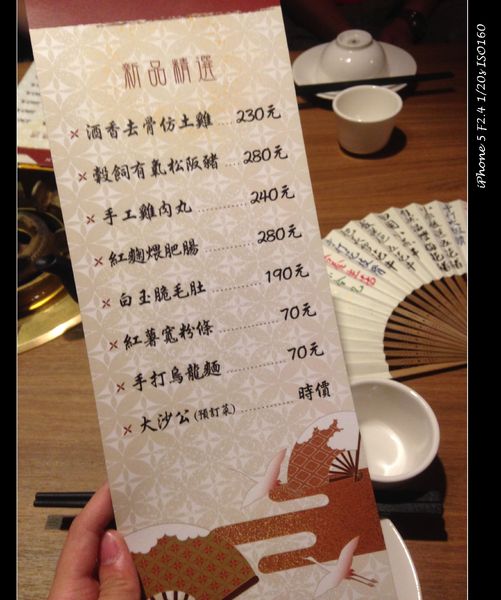 iPhone 5 F2.4 1/20s ISO160
新品精選
× 酒香去骨仿土雞 .... 230元
× 穀飼有氧松阪豬 ....... 280元
× 手工雞肉丸 ............ 240元
× 紅麴煨肥腸 ............ 280元
× 白玉脆毛肚 ............ 190元
× 紅薯寬粉條 ............ 70元
× 手打烏龍麵 ............ 70元
× 大沙公(預訂菜) ............ 時價